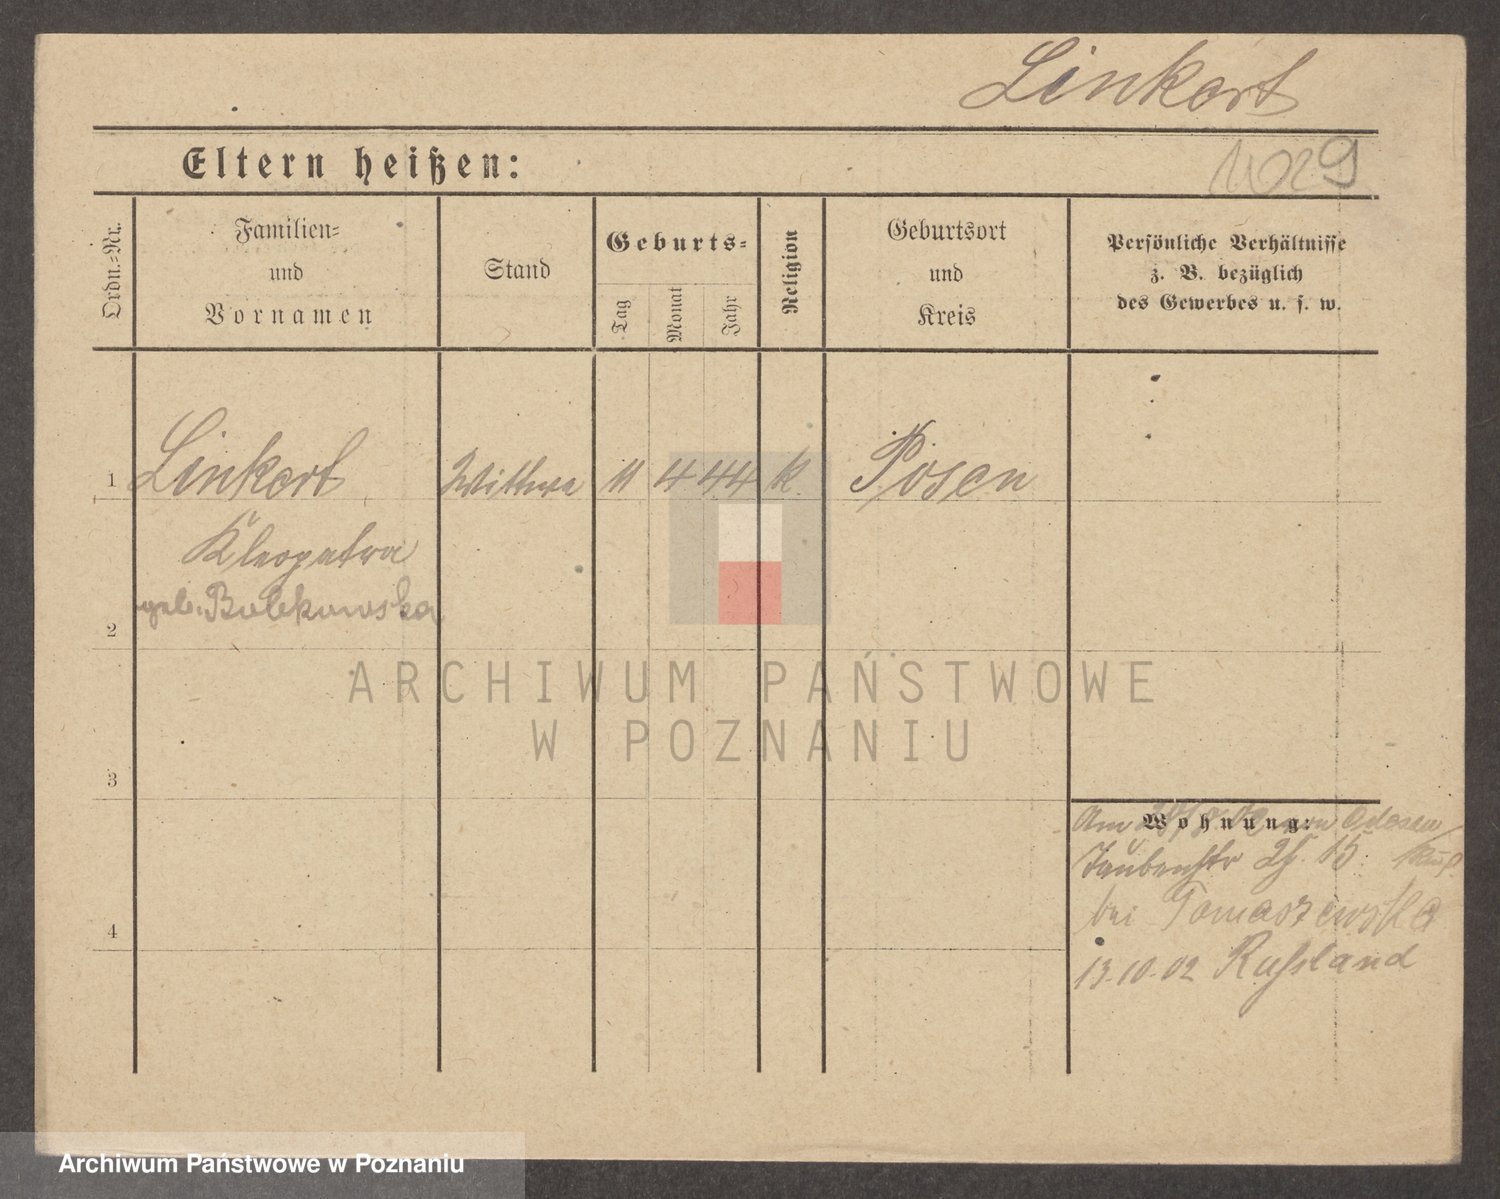 Linkert
Eltern heißen:
Ordn.-Nr.
Familien-
und
Vornamen
Stand
Geburts-
Tag
Monat
Jahr
Religion
Geburtsort
und
Kreis
Persönliche Verhältnisse
z. B. bezüglich
des Gewerbes u. s. w.
1 Linkert Wittwe 11 4 44 k. Posen
Kleopatra
geb. Bulkowska
2
ARCHIWUM PAŃSTWOWE
W POZNANIU
3
Wohnung:
Am von Odessa
Taubenstr 15
bei Tomaszewska
4
13.10.02 Russland
Archiwum Państwowe w Poznaniu